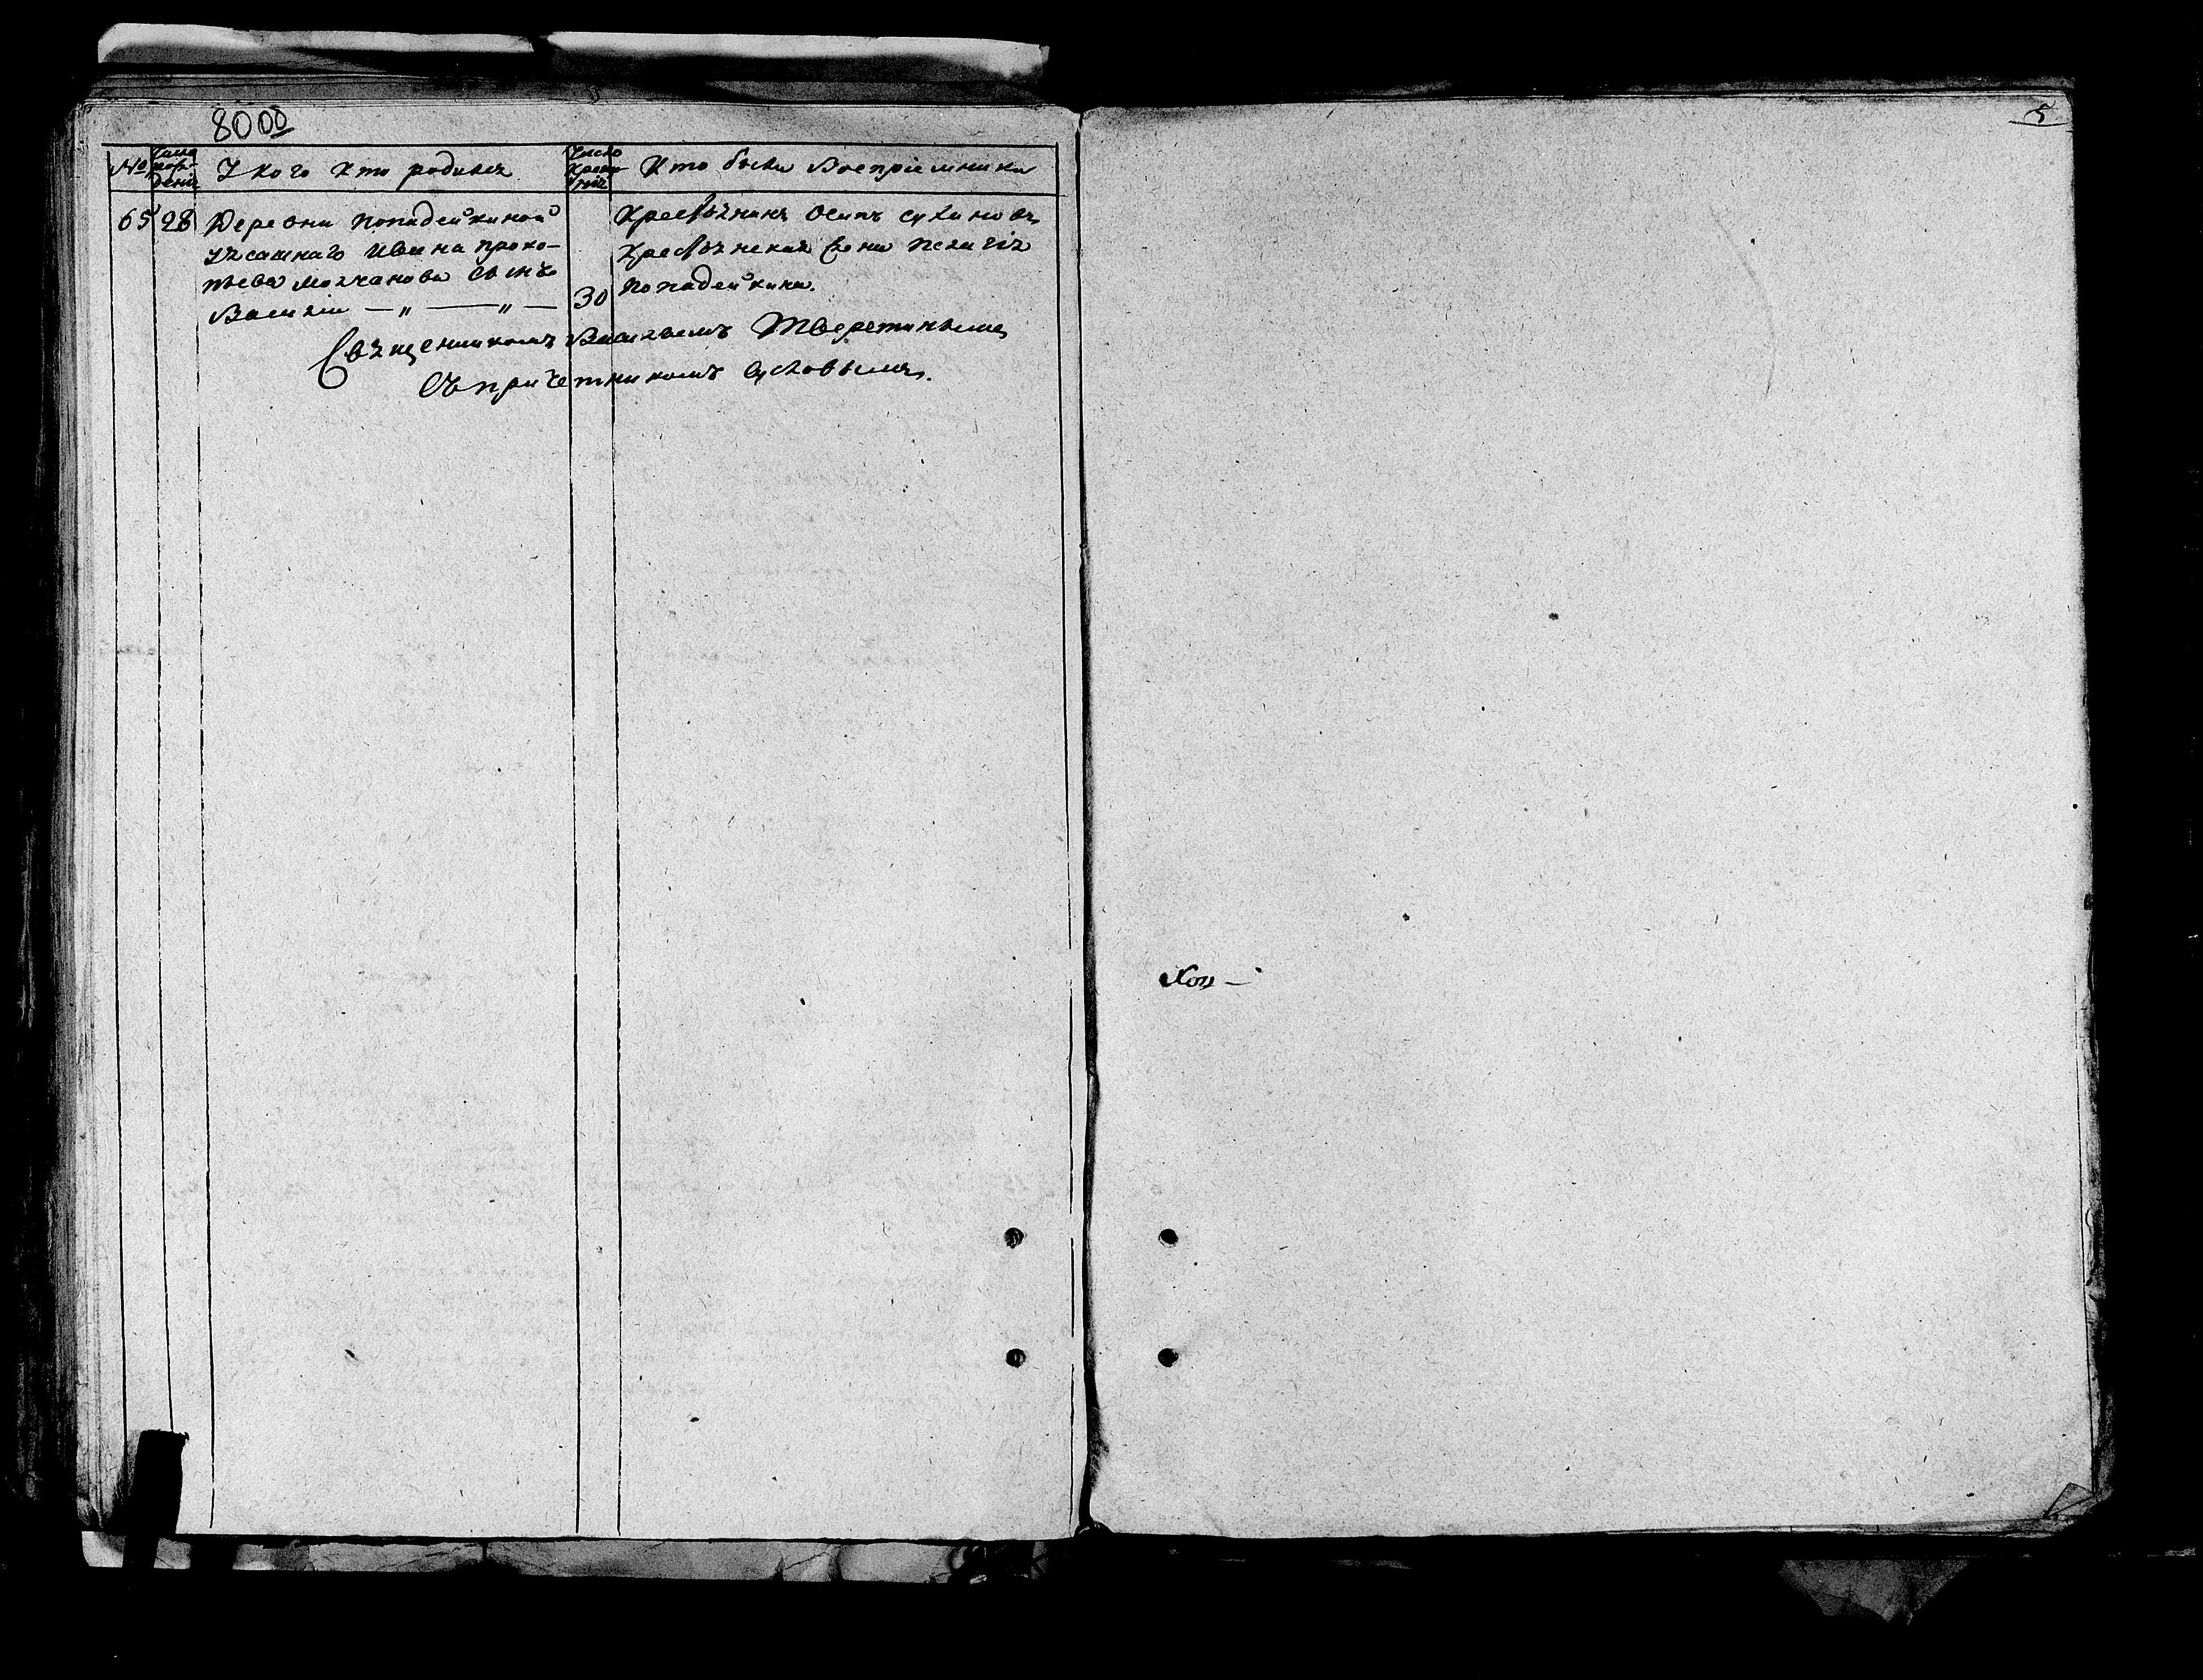 8000
№ Число рож-дения У кого кто родился Число креще-ния Кто были восприемники
65 28 Деревни Попадейкиной
ясашнаго Ивана Проко-
пьева Молчанова сынъ
Василий — „ — „ — 30
Крестьянинъ Осипъ Сухановъ,
Крестьянская жена Пелагія
Попадейкина.
Священникомъ Васильемъ Тверетинымъ
Съ причетникомъ Сусловымъ.
5